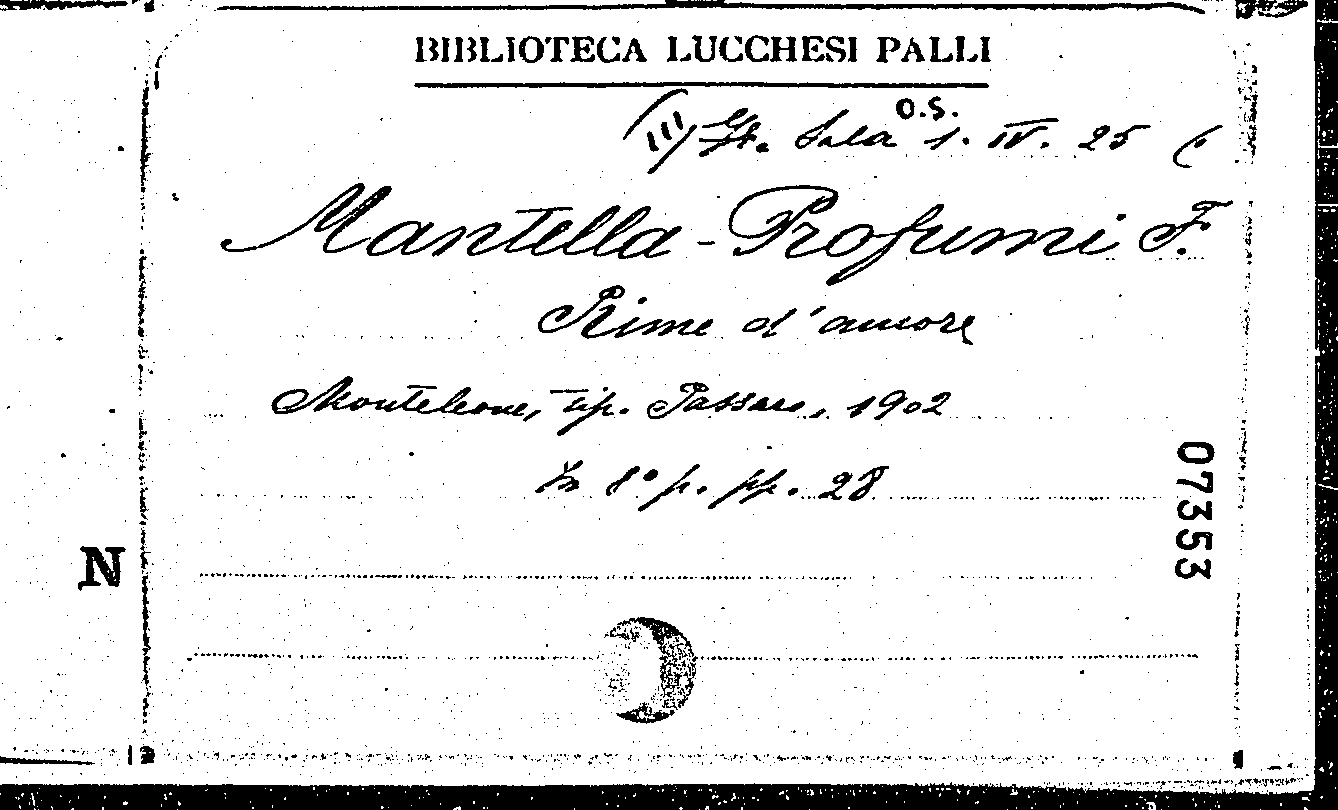 BIBLIOTECA LUCCHESI PALLI
O.S.
(III) Sala 1. IV. 25 (
Mantella-Profumi F.
Rime d'amore
Monteleone, tip. Passaro, 1902
In 8° p. pp. 28
07353
N